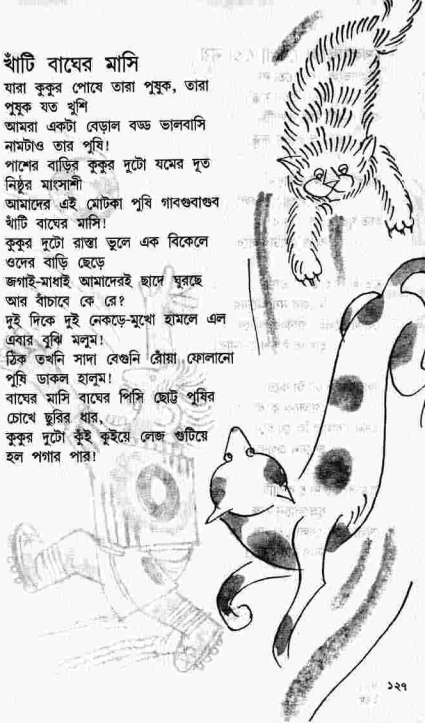 খাঁটি বাঘের মাসি
যারা কুকুর পোষে তারা পুষুক, তারা
পুষুক যত খুশি
আমরা একটা বেড়াল বড্ড ভালবাসি
নামটাও তার পুষি!
পাশের বাড়ির কুকুর দুটো যমের দূত
নিষ্ঠুর মাংসাশী
আমাদের এই মোটকা পুষি গাবগুবাগুব
খাঁটি বাঘের মাসি!
কুকুর দুটো রাস্তা ভুলে এক বিকেলে
ওদের বাড়ি ছেড়ে
জগাই-মাধাই আমাদেরই ছাদে ঘুরছে
আর বাঁচাবে কে রে?
দুই দিকে দুই নেকড়ে-মুখো হামলে এল
এবার বুঝি মলুম!
ঠিক তখনি সাদা বেগুনি রোঁয়া ফোলানো
পুষি ডাকল হালুম!
বাঘের মাসি বাঘের পিসি ছোট্ট পুষির
চোখে ছুরির ধার,
কুকুর দুটো কুঁই কুইয়ে লেজ গুটিয়ে
হল পগার পার!
১২৭